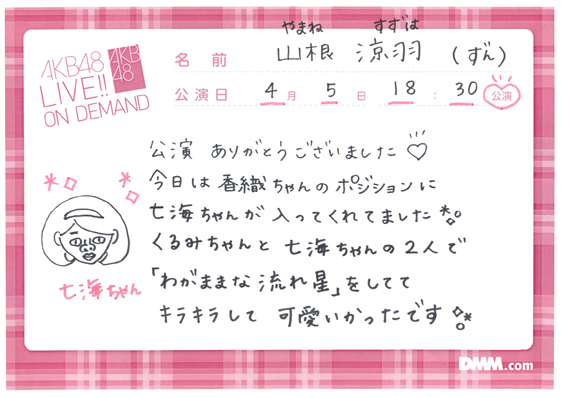 AKB48
LIVE!!
ON DEMAND
AKB
48
やまね すずは
名前 山根 涼羽 (ずん)
公演日 4月 5日 18:30 公演
公演 ありがとうございました♡
今日は香織ちゃんのポジションに
七海ちゃんが入ってくれてました
くるみちゃんと七海ちゃんの2人で
「わがままな流れ星」をしてて
キラキラして 可愛いかったです
七海ちゃん
DMM.com